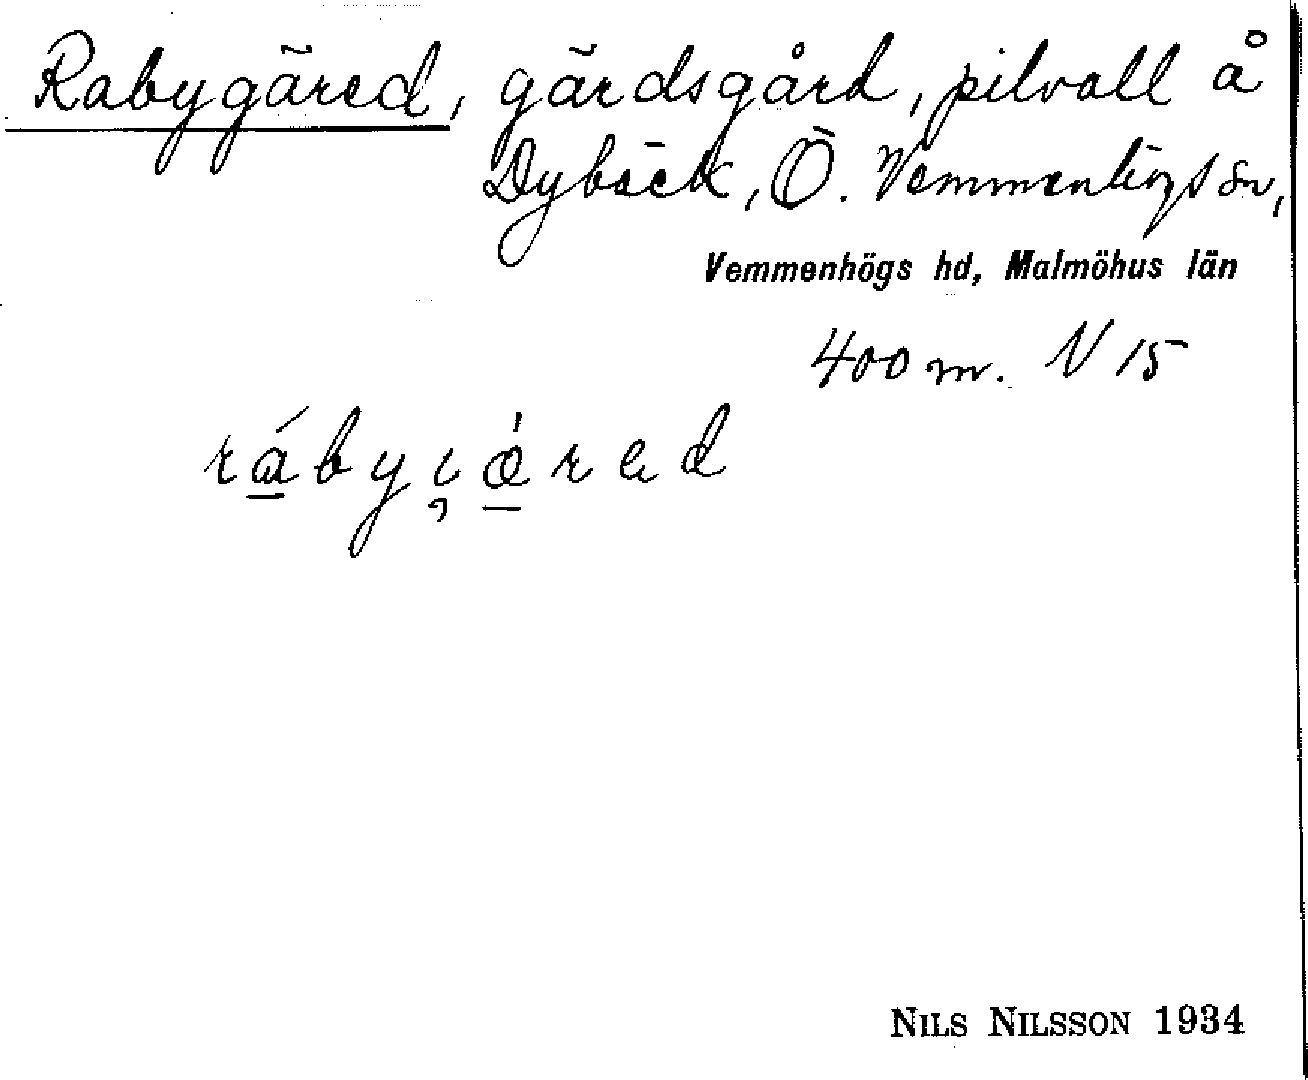 Rabygäred, gärdsgård, pilvall å
Dybäck, Ö. Vemmenhögs sn,
Vemmenhögs hd, Malmöhus län
400 m. N 15
rábyıǫ́red
NILS NILSSON 1934